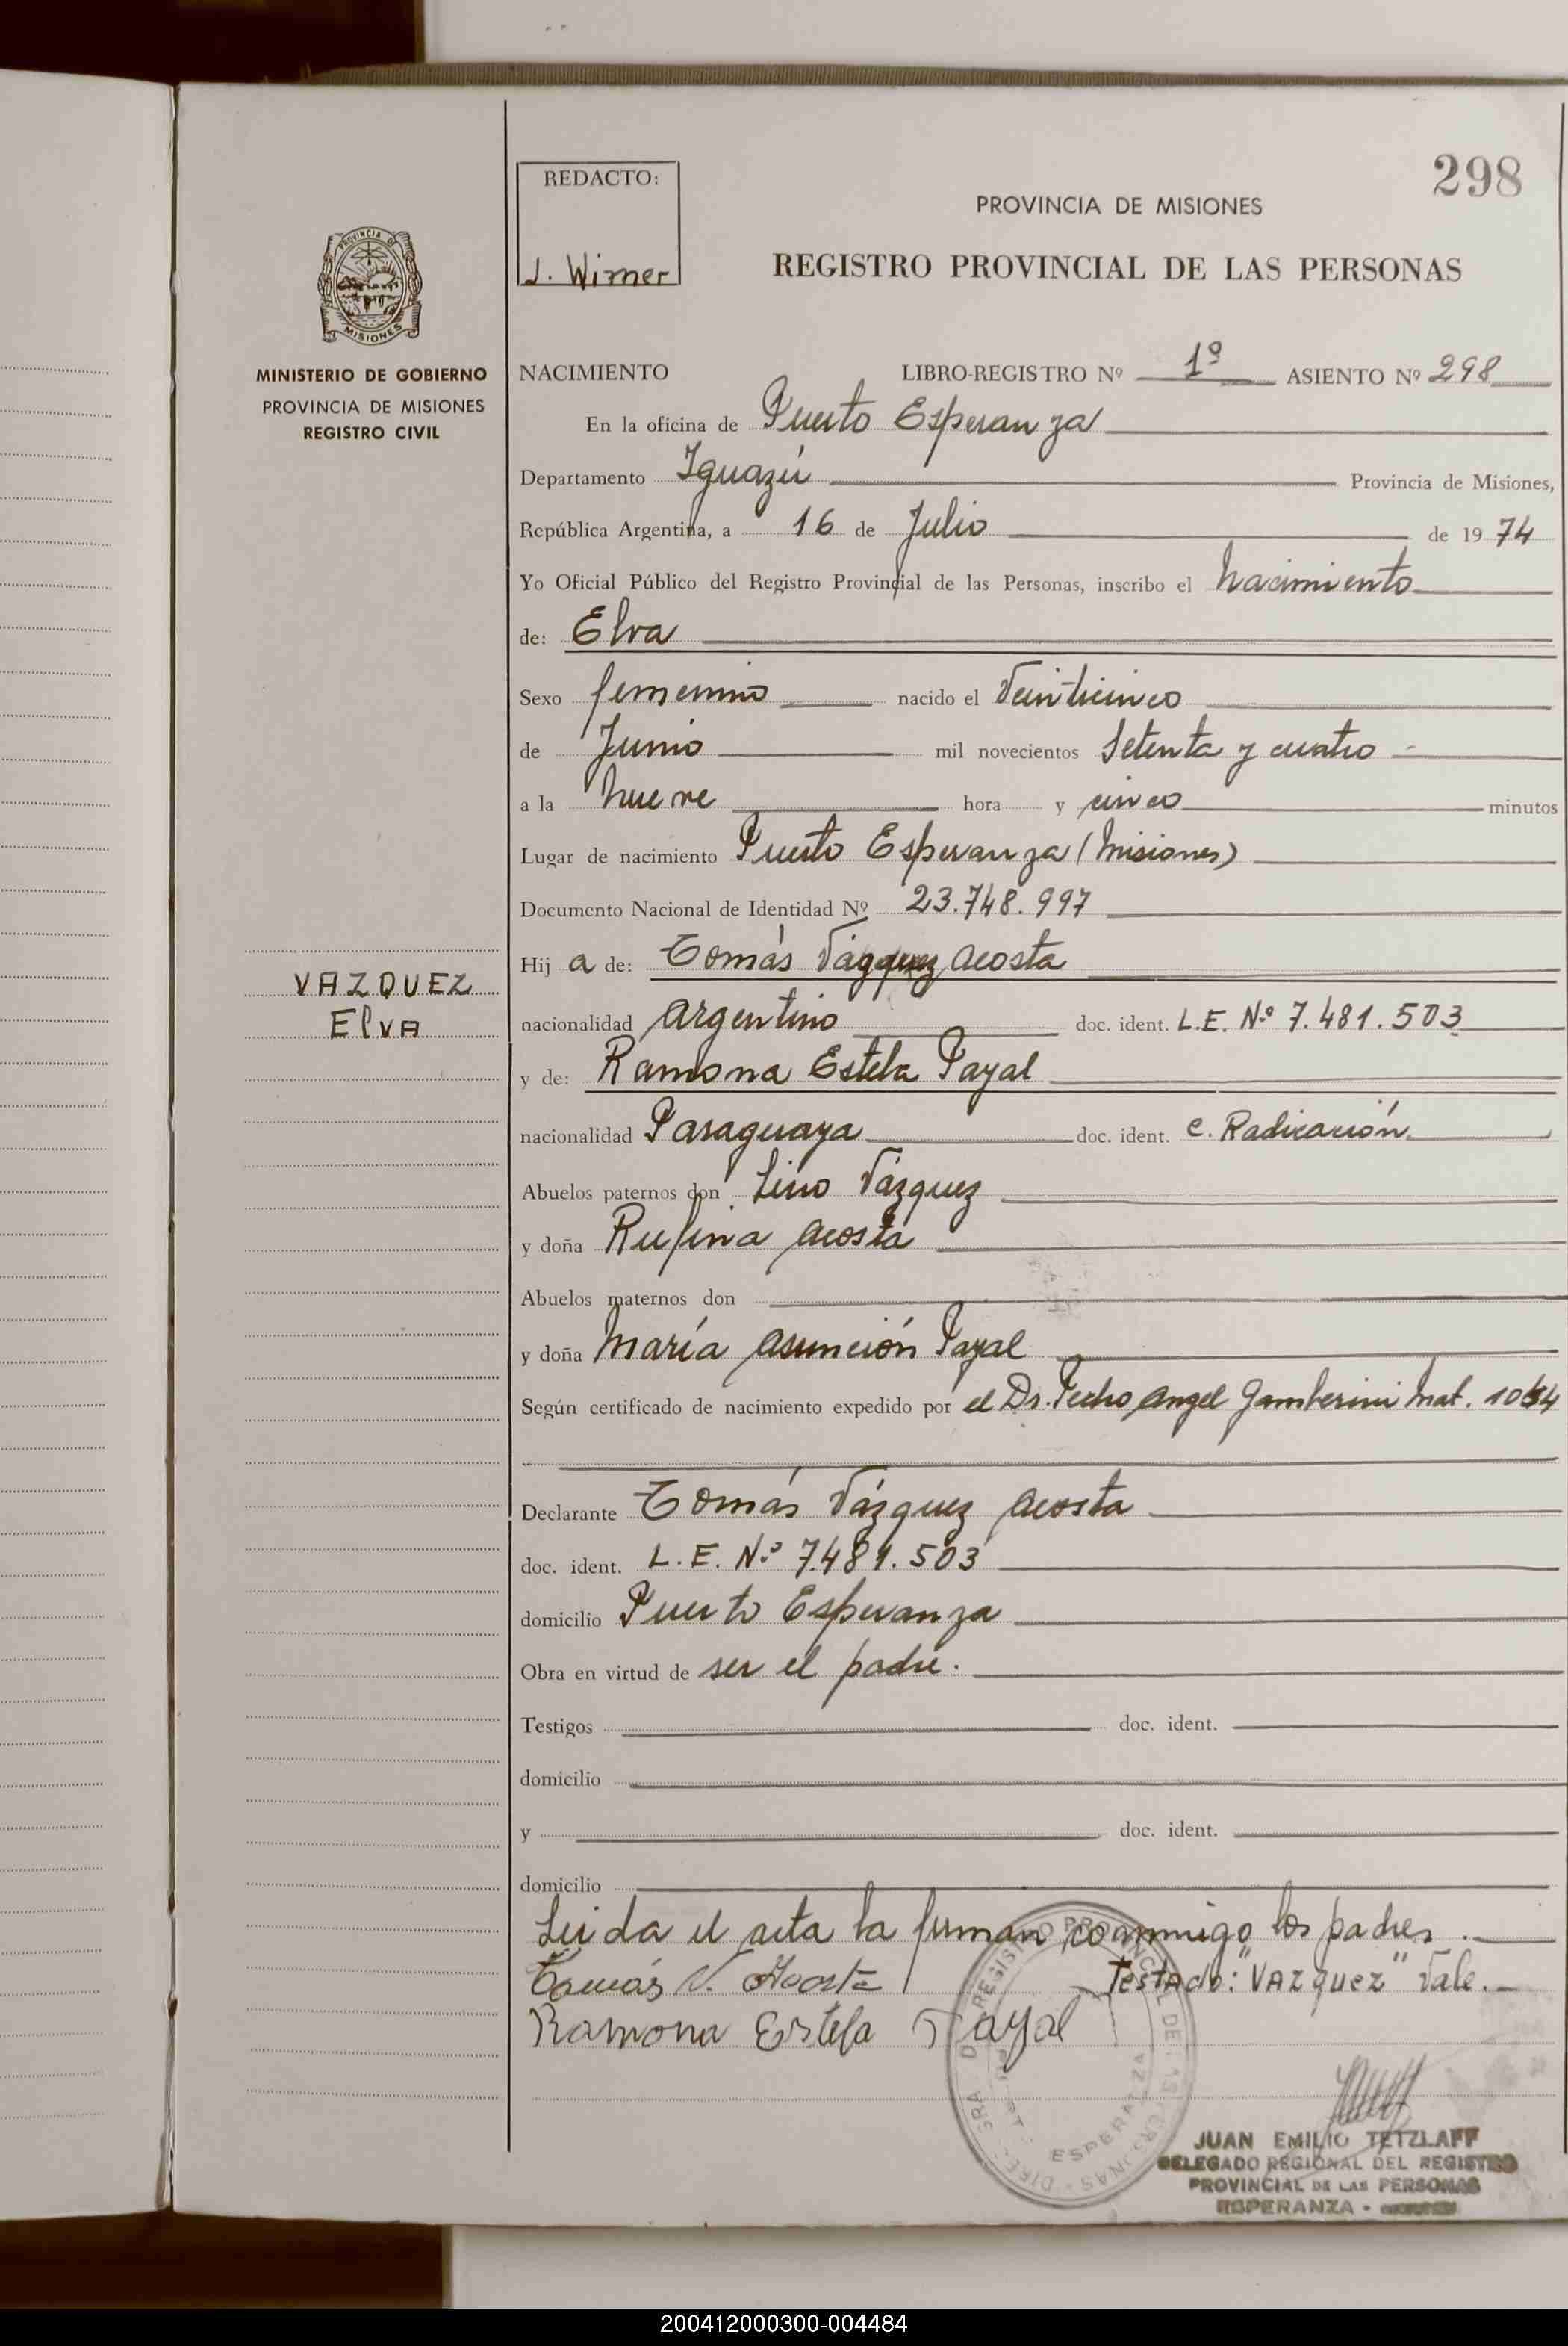 298
REDACTO:
J. Wirner
PROVINCIA DE MISIONES
REGISTRO PROVINCIAL DE LAS PERSONAS
MISIONES
MINISTERIO DE GOBIERNO
PROVINCIA DE MISIONES
REGISTRO CIVIL
NACIMIENTO LIBRO-REGISTRO Nº 1º ASIENTO Nº 298
En la oficina de Puerto Esperanza
Departamento Iguazú Provincia de Misiones,
República Argentina, a 16 de Julio de 19 74
Yo Oficial Público del Registro Provincial de las Personas, inscribo el nacimiento
de: Elva
Sexo femenino nacido el Veinticinco
de Junio mil novecientos Setenta y cuatro
a la nueve hora y cinco minutos
Lugar de nacimiento Puerto Esperanza (Misiones)
Documento Nacional de Identidad Nº 23.748.997
Hij a de: Tomás Vázquez Acosta
VAZQUEZ
ElVA
nacionalidad argentino doc. ident. L.E. Nº 7.481.503
y de: Ramona Estela Tayal
nacionalidad Paraguaya doc. ident. C. Radicación
Abuelos paternos don Lino Vázquez
y doña Rufina Acosta
Abuelos maternos don
y doña María Asunción Tayal
Según certificado de nacimiento expedido por el Dr. Pedro Angel Gamberini Mat.
Declarante Tomás Vázquez Acosta
doc. ident. L.E. Nº 7.481.503
domicilio Puerto Esperanza
Obra en virtud de ser el padre.
Testigos doc. ident.
domicilio
y doc. ident.
domicilio
Leida el acta la firman conmigo los padres.
Tomás V. Acosta Testado: "VAZquez" Vale.
Ramona Estela Tayal
JUAN EMILIO TETZLAFF
DELEGADO REGIONAL DEL REGISTRO
PROVINCIAL DE LAS PERSONAS
ESPERANZA -
200412000300-004484